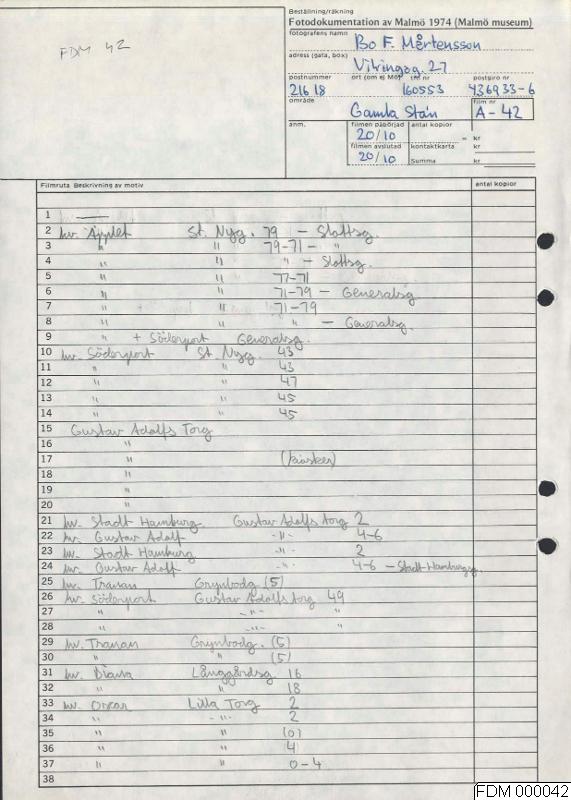 FDM 42
Beställning/räkning
Fotodokumentation av Malmö 1974 (Malmö museum)
fotografens namn
Bo F. Mårtensson
adress (gata, box)
Vikingag. 27
postnummer ort (om ej Mö) tel nr postgiro nr
216 18 160553 436933-6
område film nr
Gamla Stan A-42
anm. filmen påbörjad antal kopior
20/10 = kr
filmen avslutad kontaktkarta kr
20/10 Summa kr
Filmruta Beskrivning av motiv antal kopior
1 —
2 kv. Äpplet St. Nyg. 79 - Slottsg.
3 " " 79-71 - "
4 " " " - Slottsg.
5 " " 77-71
6 " " 71-79 - Generalsg
7 " " 71-79
8 " " " - Generalsg.
9 " + Söderport Generalsg.
10 kv. Söderport St. Nyg. 43
11 " " 43
12 " " 47
13 " " 45
14 " " 45
15 Gustav Adolfs Torg
16 "
17 " (kiosker)
18 "
19 "
20 "
21 kv. Stadt Hamburg Gustav Adolfs torg 2
22 kv. Gustav Adolf -"- 4-6
23 kv. Stadt Hamburg -"- 2
24 kv. Gustav Adolf -"- 4-6 - Stadt Hamburgsg.
25 kv. Tranan Grynbodg (5)
26 kv. Söderport Gustav Adolfs torg 49
27 " -"- "
28 " -"- "
29 kv. Tranan Grynbodg. (5)
30 " " (5)
31 kv. Diana Långgårdsg 16
32 " " 18
33 kv. Oscar Lilla Torg 2
34 " -"- 2
35 " " (0)
36 " " 4
37 " " 0-4
38
FDM 000042